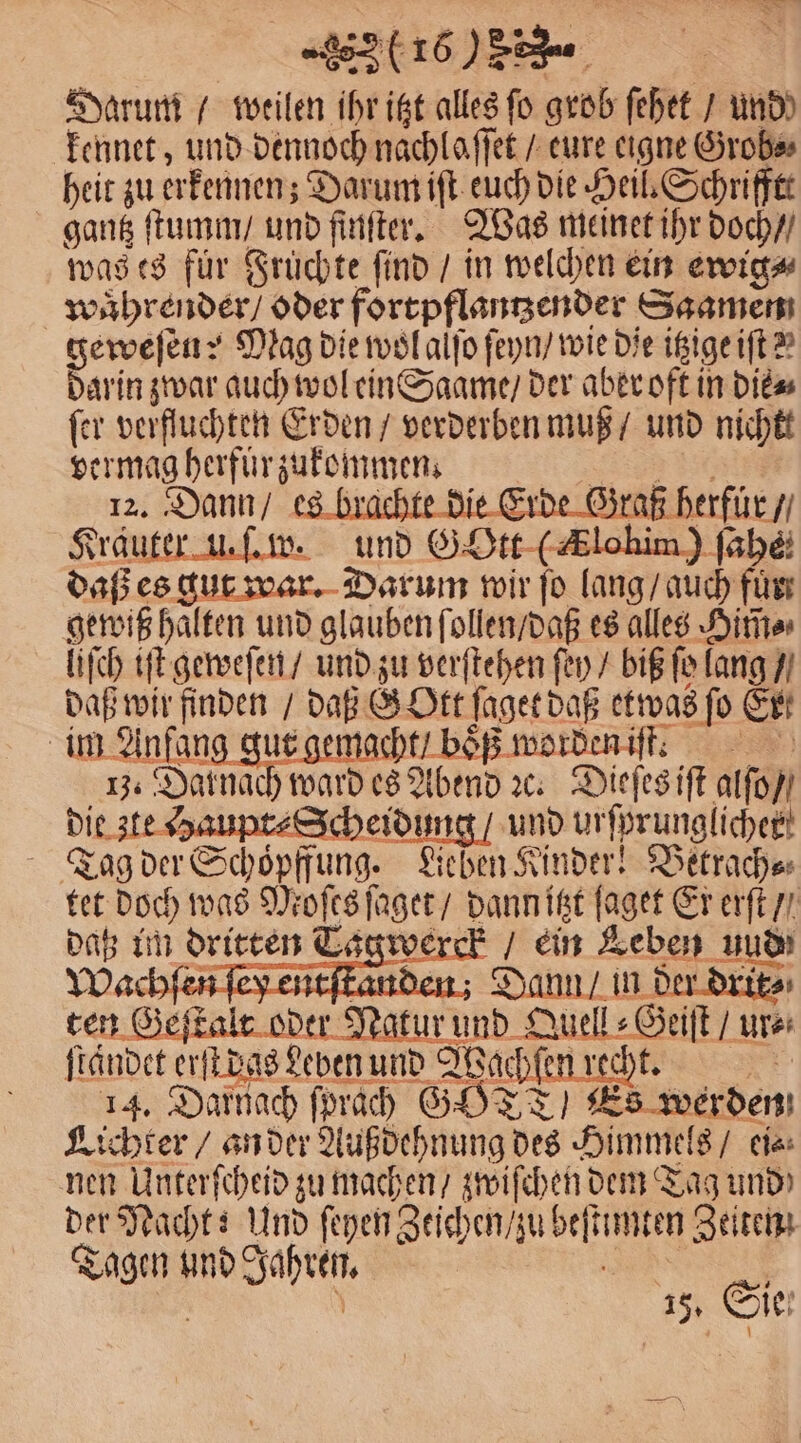 (16)
Darum / weilen ihr itzt alles ſo grob ſehet / und
kennet, und dennoch nachlaſſet / eure eigne Grob⸗
heit zu erkennen; Darum iſt euch die Heil. Schrifft
gantz ſtumm / und finſter. Was meinet ihr doch /
was es für Früchte ſind / in welchen ein ewig⸗
währender / oder fortpflantzender Saamen
geweſen? Mag die wol alſo ſeyn / wie die itzige iſt?
darin zwar auch wol ein Saame / der aber oft in die⸗
ſer verfluchten Erden / verderben muß / und nicht
vermag herfür zukommen.
12. Dann / es brachte die Erde Graß herfür /
Kräuter u. ſ. w. und GOtt (Ælohim) ſahe
daß es gut war. Darum wir ſo lang / auch für
gewiß halten und glauben ſollen / daß es alles Him̃⸗
liſch iſt geweſen / und zu verſtehen ſey / biß ſo lang /
daß wir finden / daß GOtt ſaget daß etwas ſo Er
im Anfang gut gemacht / böß worden iſt.
13. Darnach ward es Abend ꝛc. Dieſes iſt alſo /
die 3te Haupt⸗Scheidung / und urſprunglicher
Tag der Schöpffung. Lieben Kinder! Betrach⸗
tet doch was Moſes ſaget / dann itzt ſaget Er erſt /
daß im dritten Tagwerck / ein Leben und
Wachſen ſey entſtanden; Dann / in der drit⸗
ten Geſtalt oder Natur und Quell⸗Geiſt / ur⸗
ſtändet erſt das Leben und Wachſen recht.
14. Darnach ſprach GOTT / Es werden
Lichter / an der Außdehnung des Himmels / ei⸗
nen Unterſcheid zu machen / zwiſchen dem Tag und
der Nacht: Und ſeyen Zeichen / zu beſtimten Zeiten
Tagen und Jahren.
15. Sie